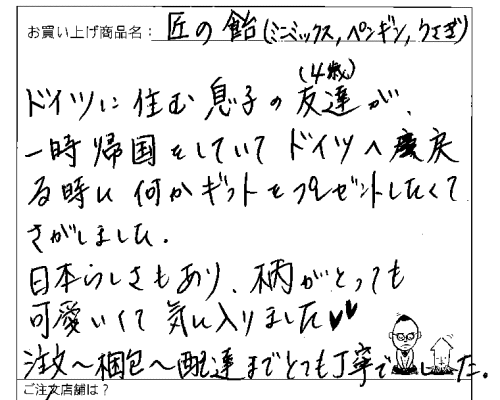 お買い上げ商品名： 匠の飴(ミニミックス, ペンギン, うさぎ)
(4歳)
ドイツに住む息子の友達が、
一時帰国をしていてドイツへ戻
る時に何かギフトをプレゼントしたくて
さがしました.
日本らしさもあり、柄がとっても
可愛いくて気に入りました♥♥
注文〜梱包〜配達までとても丁寧でした。
ご注文店舗は？